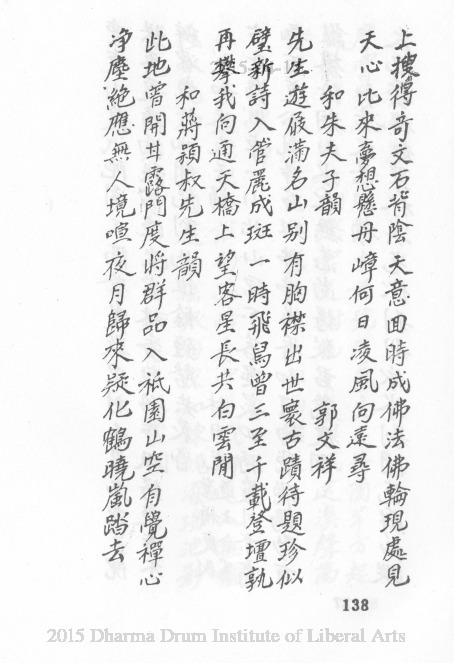 上搜得奇文石背陰天意回時成佛法佛輪現處見
天心此來夢想懸丹嶂何日凌風向遠尋
和朱夫子韻 郭文祥
先生遊屐滿名山別有胸襟出世寰古蹟待題珍似
璧新詩入管麗成斑一時飛舄曾三至千載登壇孰
再攀我向通天橋上望客星長共白雲閒
和蔣穎叔先生韻
此地曾開甘露門度將群品入祇園山空自覺禪心
净塵絕應無人境喧夜月歸來疑化鶴曉嵐踏去
138
2015 Dharma Drum Institute of Liberal Arts